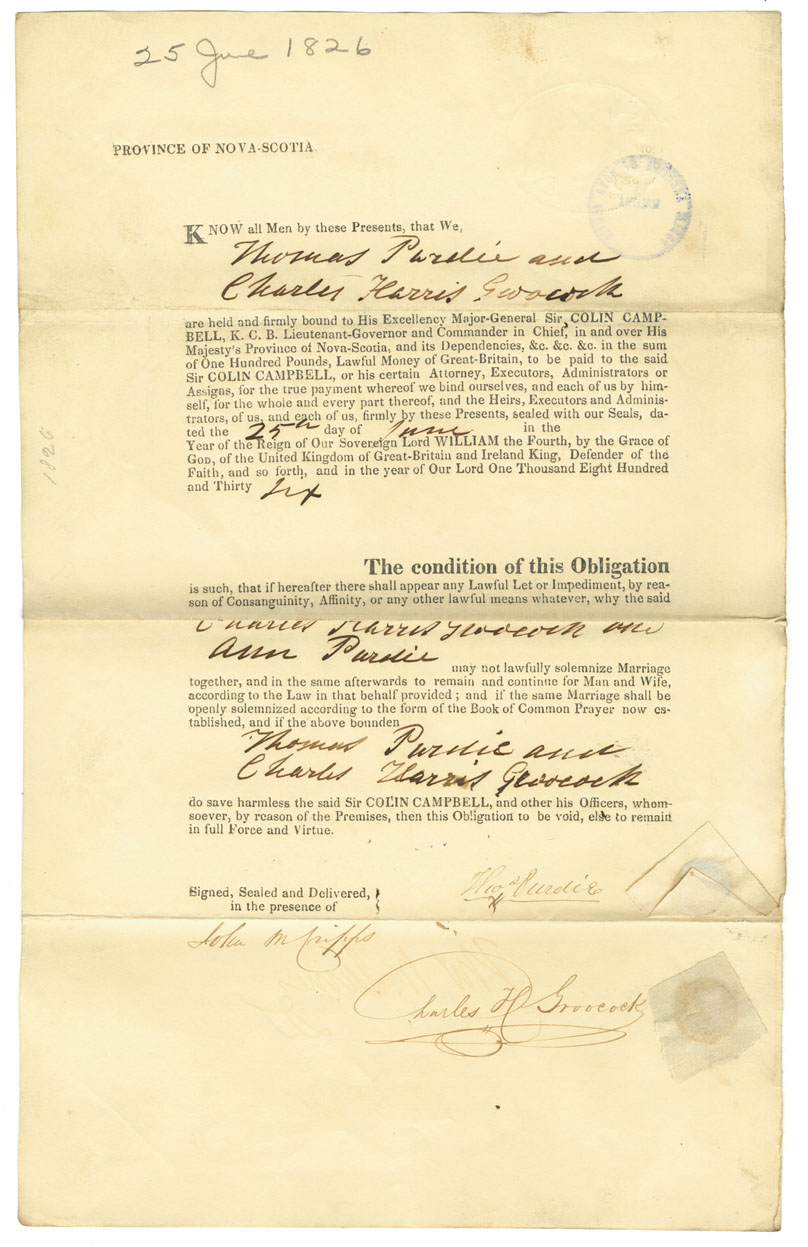 25 June 1826
PROVINCE OF NOVA-SCOTIA.
KNOW all Men by these Presents, that We,
Thomas Purdie and
Charles Harris Groocock
are held and firmly bound to His Excellency Major-General Sir COLIN CAMP-
BELL, K. C. B. Lieutenant-Governor and Commander in Chief, in and over His
Majesty's Province of Nova-Scotia, and its Dependencies, &c. &c. &c. in the sum
of One Hundred Pounds, Lawful Money of Great-Britain, to be paid to the said
Sir COLIN CAMPBELL, or his certain Attorney, Executors, Administrators or
Assigns, for the true payment whereof we bind ourselves, and each of us by him-
self, for the whole and every part thereof, and the Heirs, Executors and Adminis-
trators, of us, and each of us, firmly by these Presents, sealed with our Seals, da-
ted the 25th day of June in the
Year of the Reign of Our Sovereign Lord WILLIAM the Fourth, by the Grace of
GOD, of the United Kingdom of Great-Britain and Ireland King, Defender of the
Faith, and so forth, and in the year of Our Lord One Thousand Eight Hundred
and Thirty Six
1826
The condition of this Obligation
is such, that if hereafter there shall appear any Lawful Let or Impediment, by rea-
son of Consanguinity, Affinity, or any other lawful means whatever, why the said
Charles Harris Groocock and
Ann Purdie
may not lawfully solemnize Marriage
together, and in the same afterwards to remain and continue for Man and Wife,
according to the Law in that behalf provided ; and if the same Marriage shall be
openly solemnized according to the form of the Book of Common Prayer now es-
tablished, and if the above bounden
Thomas Purdie and
Charles Harris Groocock
do save harmless the said Sir COLIN CAMPBELL, and other his Officers, whom-
soever, by reason of the Premises, then this Obligation to be void, else to remain
in full Force and Virtue.
Signed, Sealed and Delivered,
in the presence of
Thos Purdie
John M Cripps
Charles H Groocock